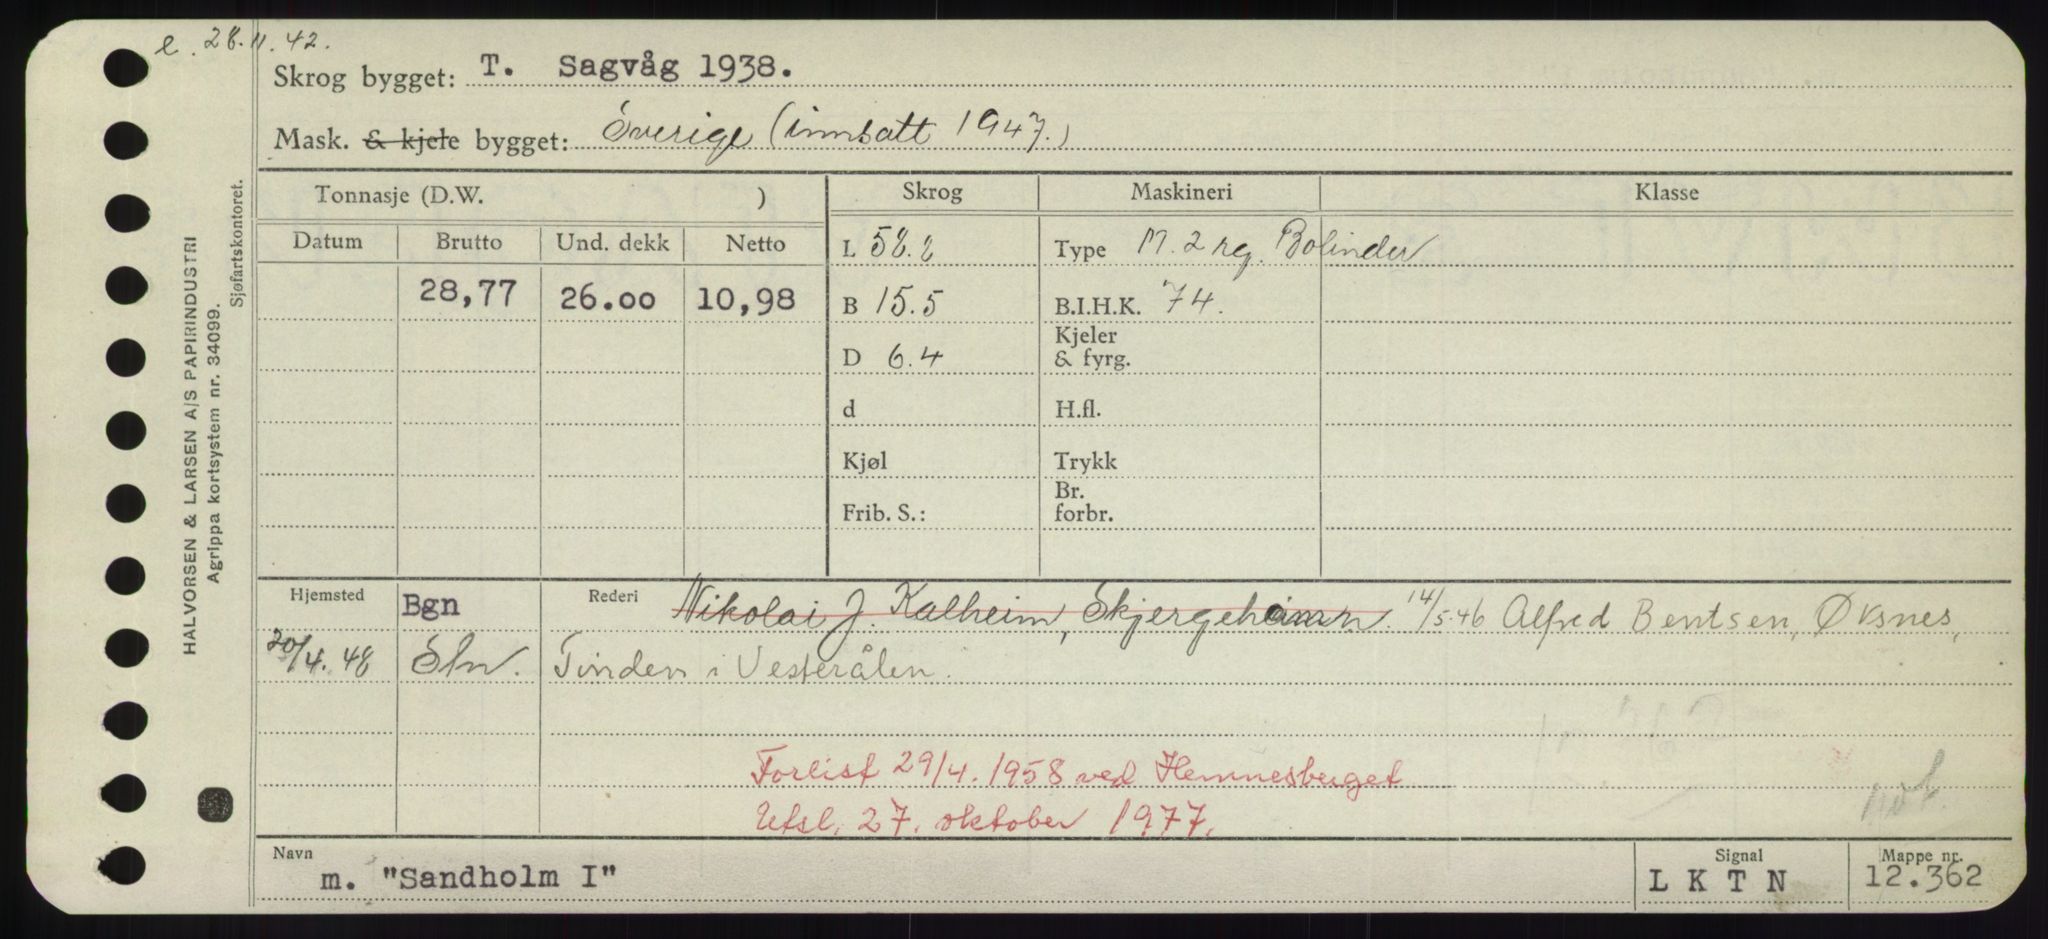 e. 28.11.42.
Skrog bygget: T. Sagvåg 1938.
Mask. & kjele bygget: Sverige (innsatt 1947.)
Tonnasje (D.W. ) Skrog Maskineri Klasse
Datum Brutto Und. dekk Netto L 58.2 Type M. 2 rg. Bolinder
28,77 26.00 10,98 B 15.5 B.I.H.K. 74.
D 6.4 Kjeler & fyrg.
d H.fl.
Kjøl Trykk
Frib. S.: Br. forbr.
Hjemsted Bgn Rederi Nikolai J. Kalheim, Skjergehamn. 14/5.46 Alfred Bentsen, Øksnes,
20/4.48 Sln. Tinden i Vesterålen.
Forlist 29/4.1958 ved Hemnesberget
Utsl. 27. oktober 1977.
not.
Navn m. "Sandholm I" Signal LKTN Mappe nr. 12.362
HALVORSEN & LARSEN A/S PAPIRINDUSTRI
Agrippa kortsystem nr. 34099.
Sjøfartskontoret.